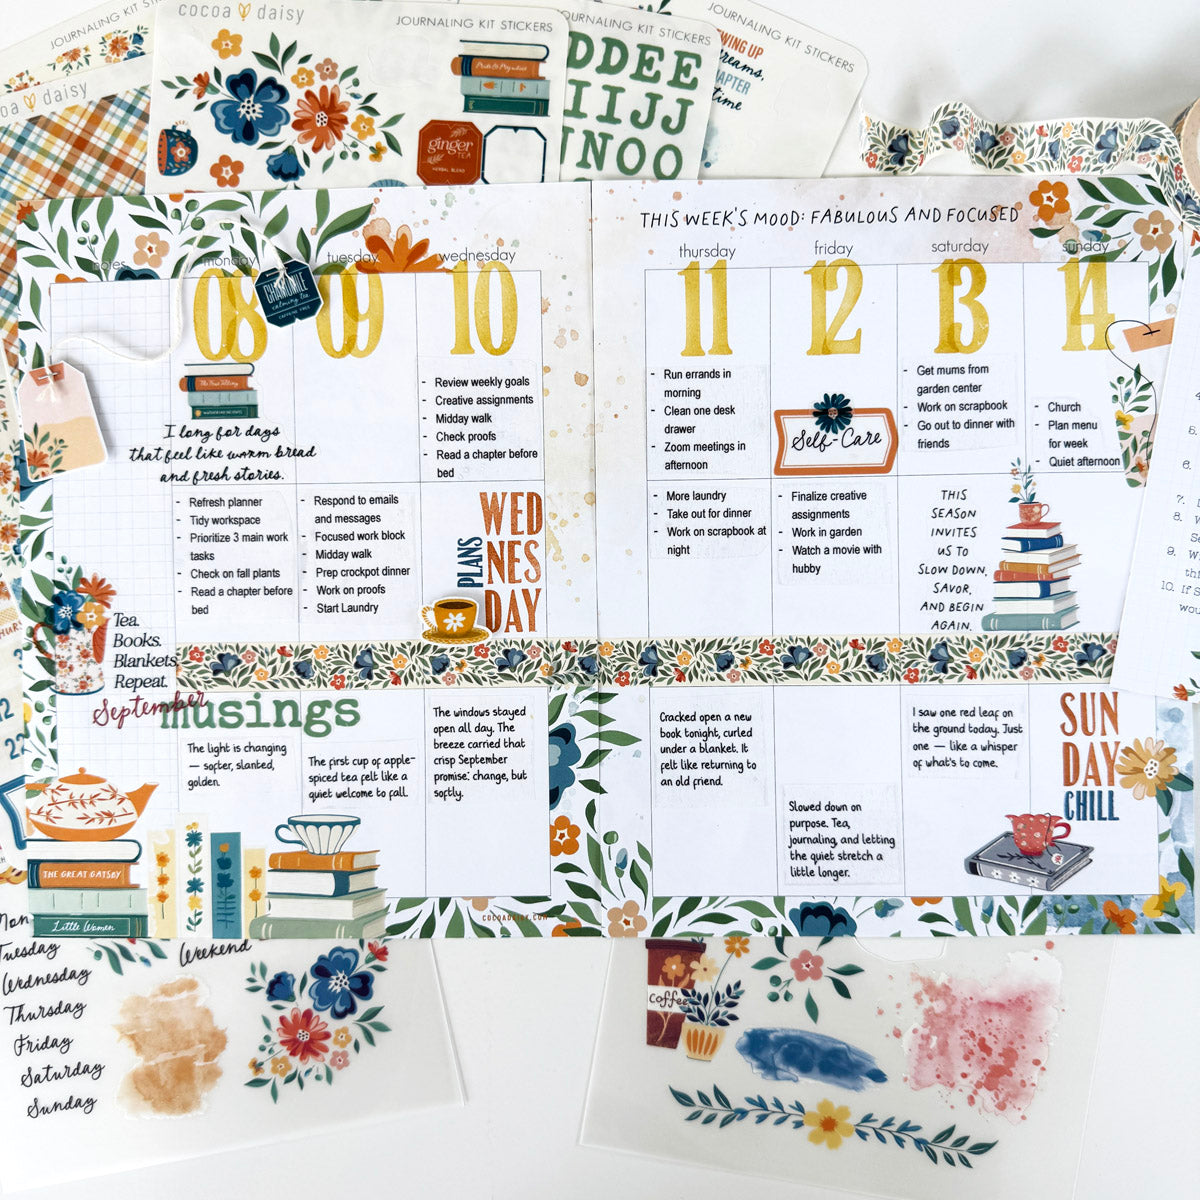 JOURNALING KIT STICKERS
cocoa daisy
JOURNALING KIT STICKERS
JOURNALING KIT STICKERS
JOURNALING KIT STICKERS
oa daisy
Pride & Prejudice
ginger
TEA
HERBAL BLEND
DDEE
IIJJ
NOO
WING UP
reams,
HAPTER
time
THIS WEEK'S MOOD: FABULOUS AND FOCUSED
notes
monday
tuesday
wednesday
thursday
friday
saturday
sunday
08
09
10
11
12
13
14
CHAMOMILE
calming tea
CAFFEINE FREE
I long for days
that feel like warm bread
and fresh stories.
- Review weekly goals
- Creative assignments
- Midday walk
- Check proofs
- Read a chapter before
bed
- Run errands in
morning
- Clean one desk
drawer
- Zoom meetings in
afternoon
Self-Care
- Get mums from
garden center
- Work on scrapbook
- Go out to dinner with
friends
- Church
- Plan menu
for week
- Quiet afternoon
- Refresh planner
- Tidy workspace
- Prioritize 3 main work
tasks
- Check on fall plants
- Read a chapter before
bed
- Respond to emails
and messages
- Focused work block
- Midday walk
- Prep crockpot dinner
- Work on proofs
- Start Laundry
PLANS
WED
NES
DAY
- More laundry
- Take out for dinner
- Work on scrapbook at
night
- Finalize creative
assignments
- Work in garden
- Watch a movie with
hubby
THIS
SEASON
INVITES
US TO
SLOW DOWN,
SAVOR,
AND BEGIN
AGAIN.
6.
7.
8.
9.
10. If S
wou
Tea.
Books.
Blankets
Repeat.
September
musings
The light is changing
— softer, slanted,
golden.
The first cup of apple-
spiced tea felt like a
quiet welcome to fall.
The windows stayed
open all day. The
breeze carried that
crisp September
promise: change, but
softly.
Cracked open a new
book tonight, curled
under a blanket. It
felt like returning to
an old friend.
Slowed down on
purpose. Tea,
journaling, and letting
the quiet stretch a
little longer.
I saw one red leaf on
the ground today. Just
one — like a whisper
of what's to come.
SUN
DAY
CHILL
12
22
THE GREAT GATSBY
Little Women
COCOADAISY.COM
Mon
Tuesday
Wednesday
Thursday
Friday
Saturday
Sunday
Weekend
Coffee